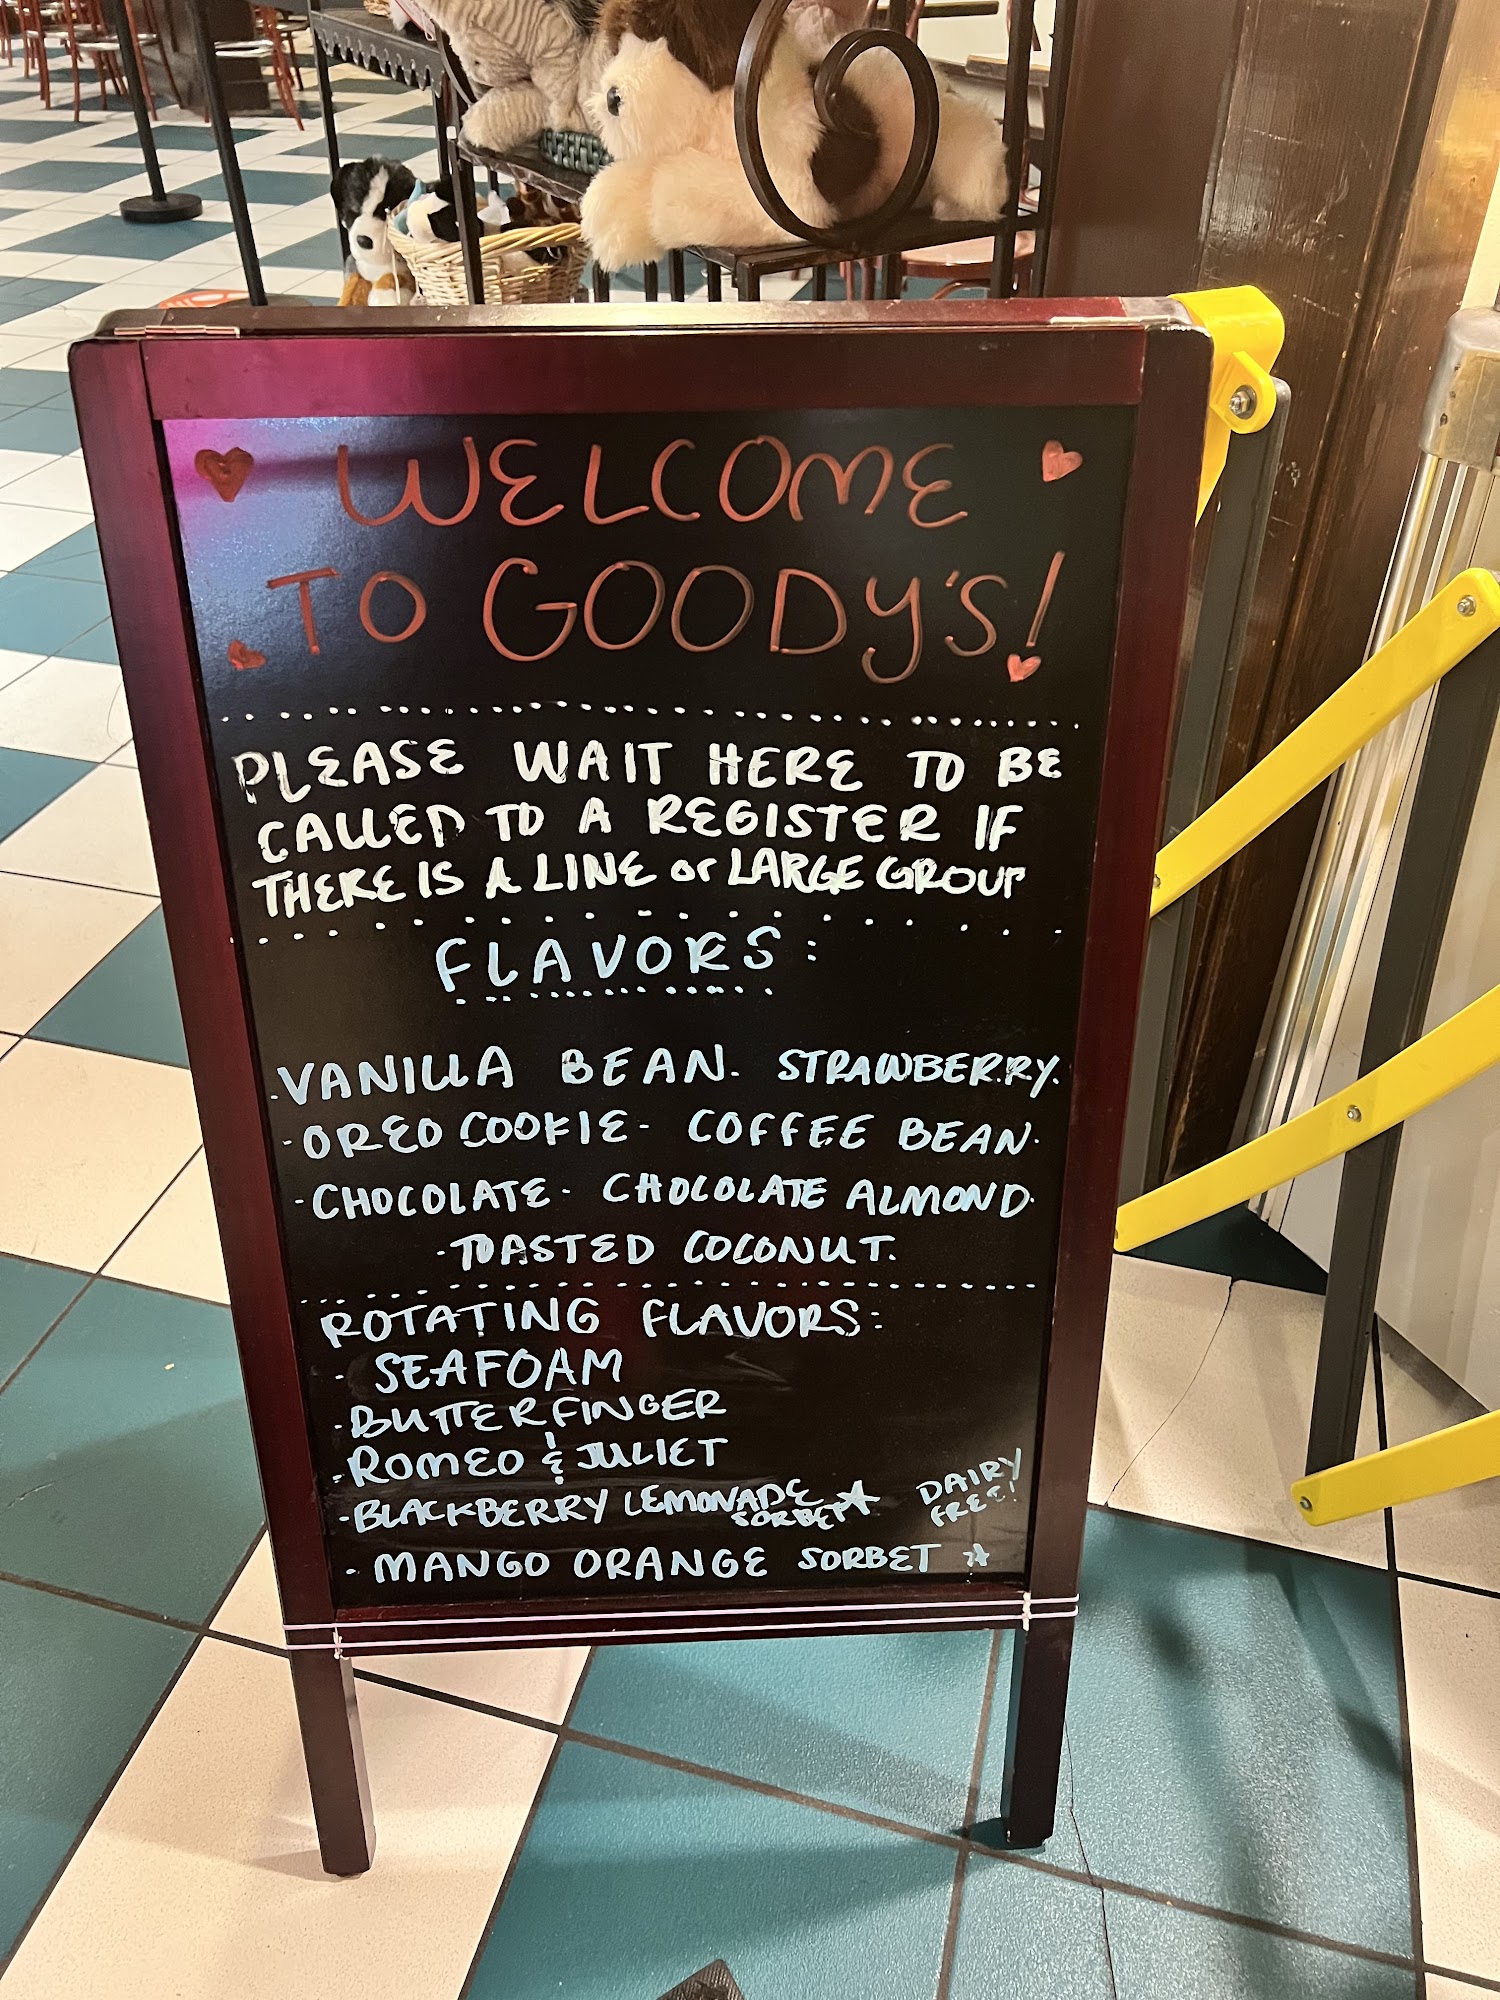 WELCOME
TO GOODY'S!
PLEASE WAIT HERE TO BE
CALLED TO A REGISTER IF
THERE IS A LINE or LARGE GROUP
FLAVORS:
·VANILLA BEAN· STRAWBERRY·
·OREO COOKIE· COFFEE BEAN·
·CHOCOLATE· CHOCOLATE ALMOND·
·TOASTED COCONUT·
ROTATING FLAVORS:
· SEAFOAM
·BUTTERFINGER
·ROMEO & JULIET
·BLACKBERRY LEMONADE SORBET ☆
DAIRY FREE!
· MANGO ORANGE SORBET ☆